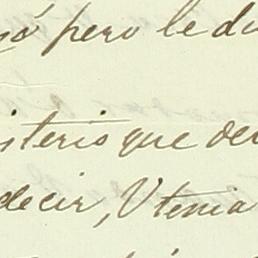 só pero le di
isterio que de
decir, V tenia